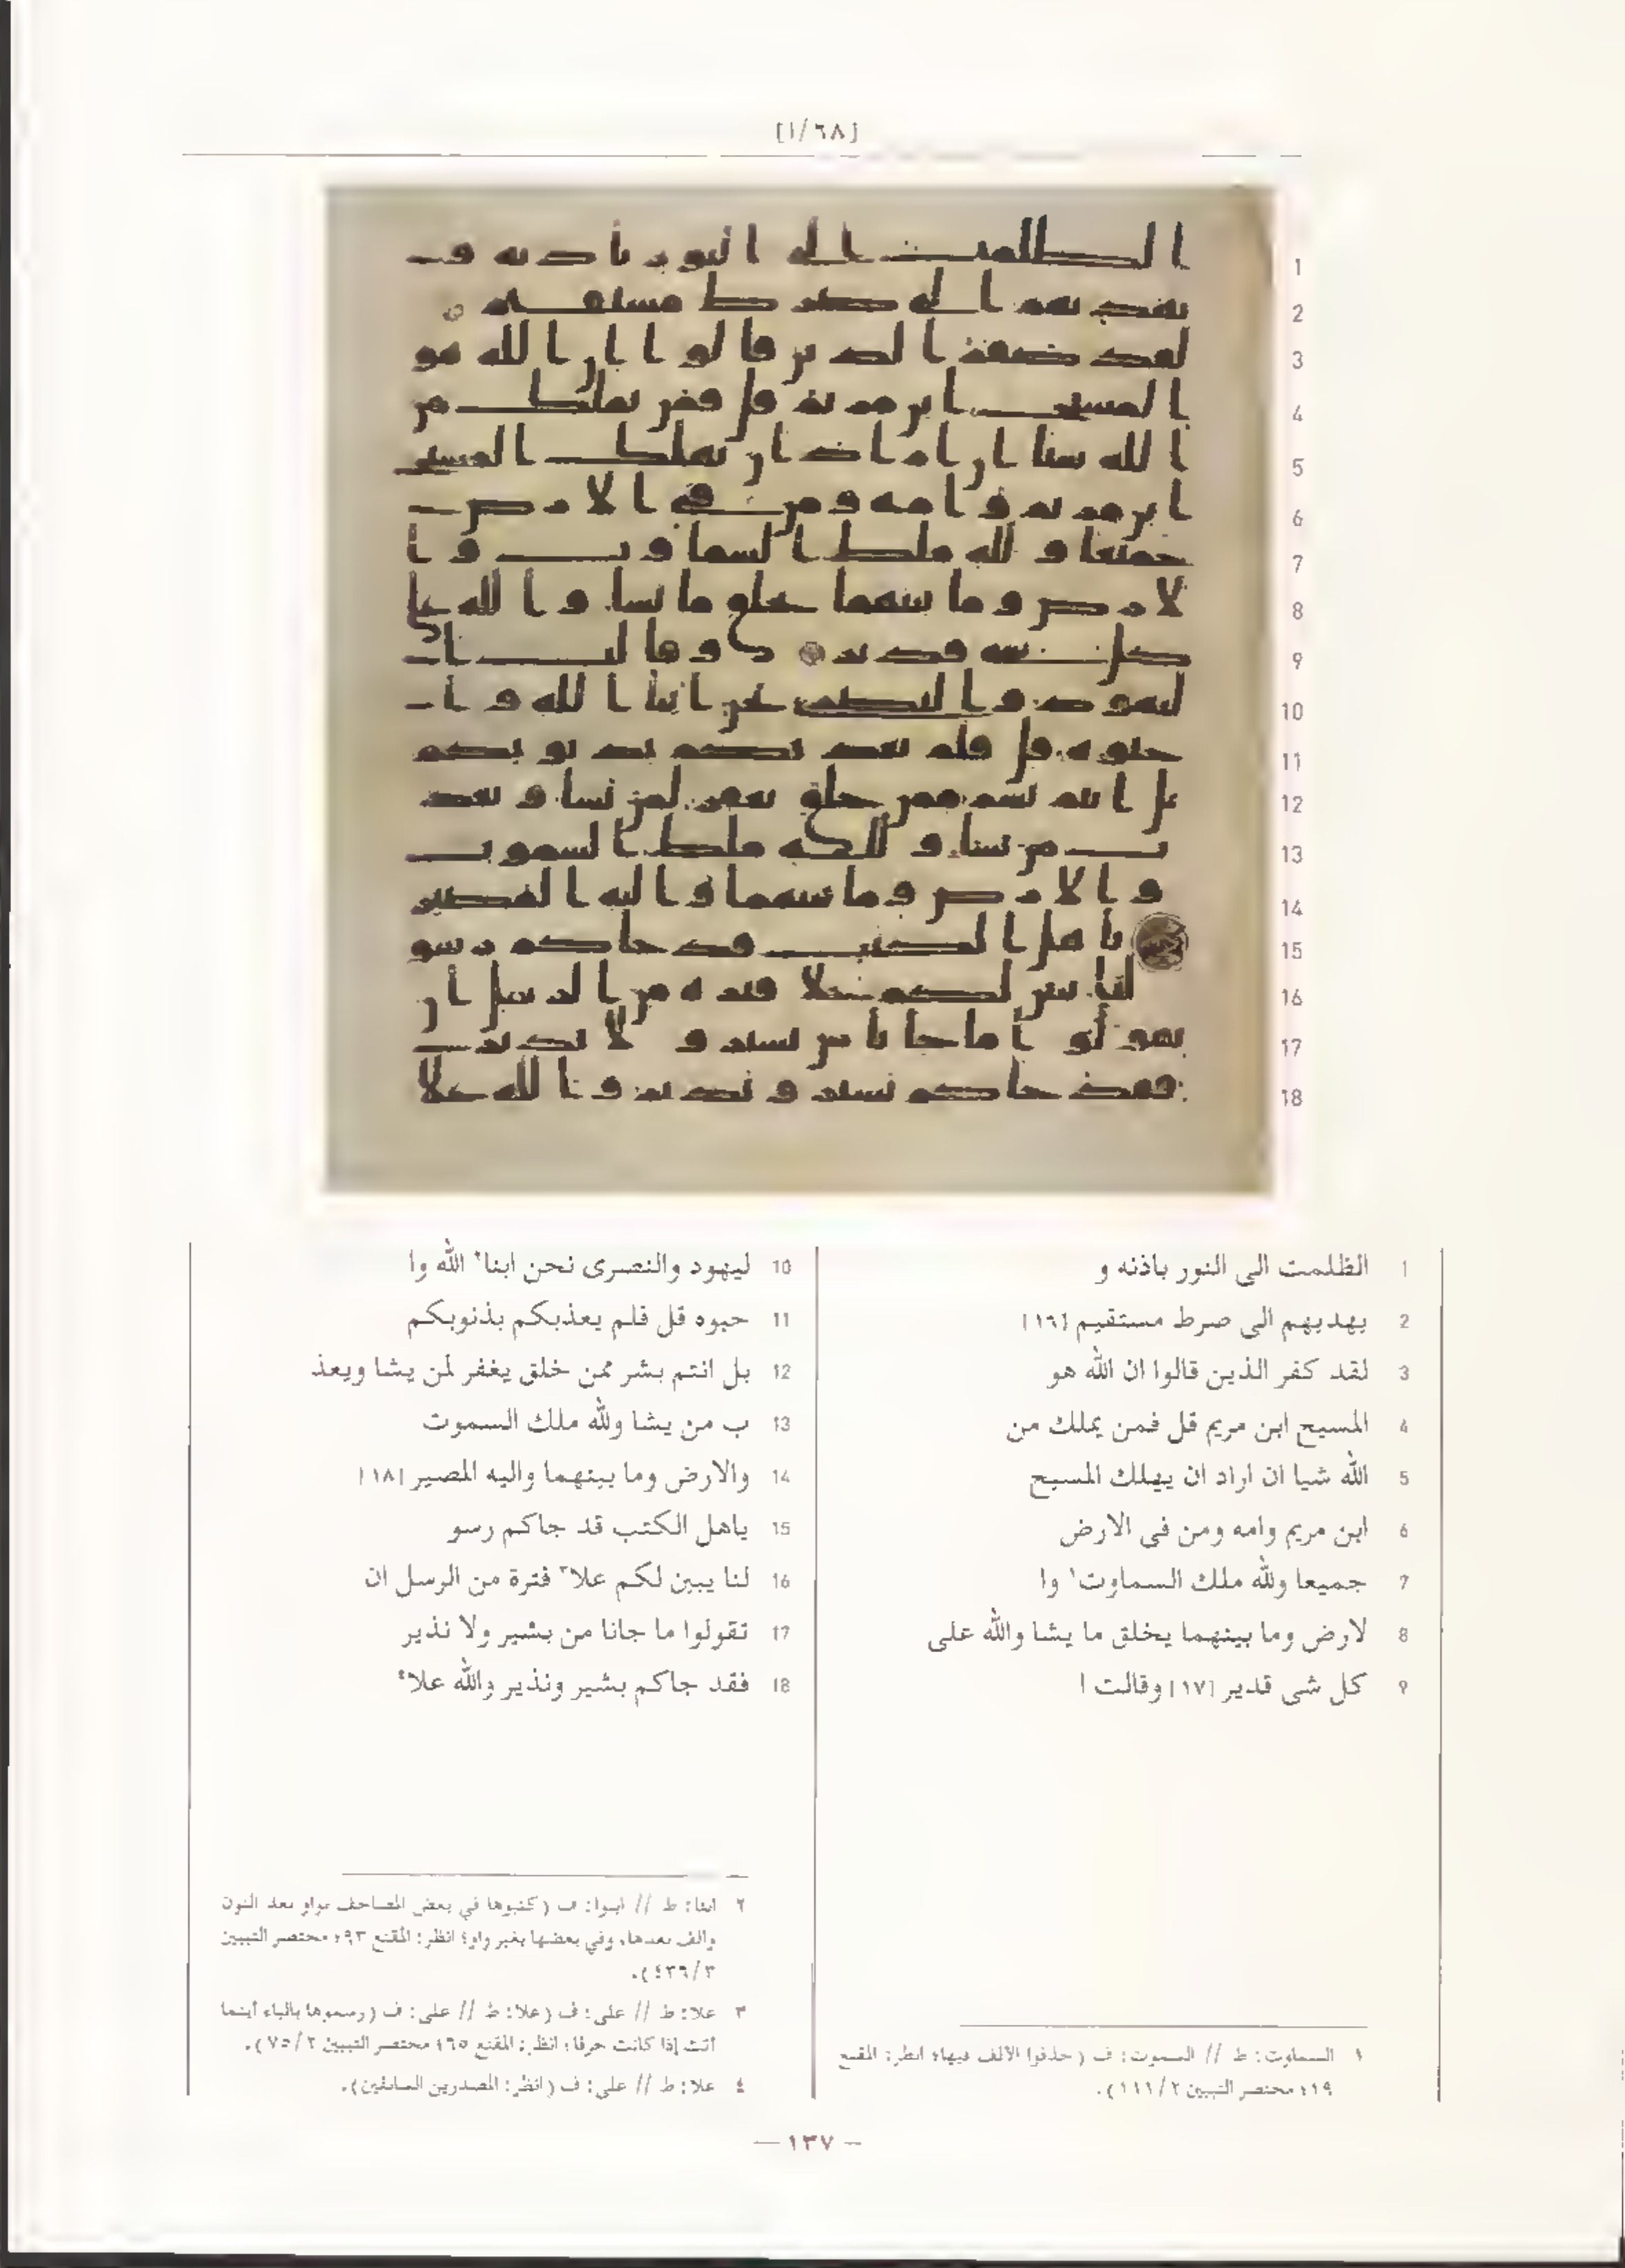 [١/٦٨]
1 الظلمت الى النور باذنه و
2 يهديهم الى صرط مستقيم [١٦]
3 لقد كفر الذين قالوا ان الله هو
4 المسيح ابن مريم قل فمن يملك من
5 الله شيا ان اراد ان يهلك المسيح
6 ابن مريم وامه ومن فى الارض
7 جميعا ولله ملك السماوت١ وا
8 لارض وما بينهما يخلق ما يشا والله على
9 كل شى قدير [١٧] وقالت ا
10 ليهود والنصرى نحن ابنا٢ الله وا
11 حبوه قل فلم يعذبكم بذنوبكم
12 بل انتم بشر ممن خلق يغفر لمن يشا ويعذ
13 ب من يشا ولله ملك السموت
14 والارض وما بينهما واليه المصير [١٨]
15 ياهل الكتب قد جاكم رسو
16 لنا يبين لكم علا٣ فترة من الرسل ان
17 تقولوا ما جانا من بشير ولا نذير
18 فقد جاكم بشير ونذير والله علا٤
١ السماوت: ط // السموت: ف (حذفوا الألف فيها؛ انظر: المقنع
١٩؛ مختصر التبيين ١١١/٢).
٢ ابنا: ط // ابنوا: ف (كتبوها في بعض المصاحف بواو بعد النون
وألف بعدها، وفي بعضها بغير واو؛ انظر: المقنع ٩٣؛ مختصر التبيين
٤٣٦/٣).
٣ علا: ط // على: ف (علا: ط // على: ف (رسموها بالياء أينما
أتت إذا كانت حرفا؛ انظر: المقنع ٦٥؛ مختصر التبيين ٧٥/٢).
٤ علا: ط // على: ف (انظر: المصدرين السابقين).
— ١٣٧ —